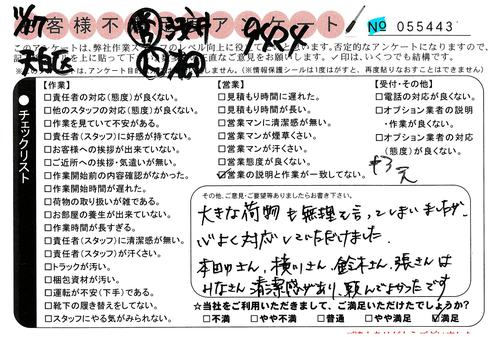 11/27
客様不 アンケート
№ 055443
太白区
このアンケートは、弊社作業スタッフのレベル向上に 否定的なアンケートになりますので、
を上に貼って下 直なご意見をお願いします。✓印は、いくつでも結構です。
しません。(※情報保護シールは1度がすと、再度貼りなおすことはできません)
チェックリスト
【作業】
□責任者の対応(態度)が良くない。
□他のスタッフの対応(態度)が良くない。
□作業を見ていて不安がある。
□責任者(スタッフ)に好感が持てない。
□お客様への挨拶が出来ていない。
□ご近所への挨拶・気遣いが無い。
□作業開始前の内容確認がなかった。
□作業開始時間が遅れた。
□荷物の取り扱いが雑である。
□お部屋の養生が出来ていない。
□作業時間が長すぎる。
□責任者(スタッフ)に清潔感が無い。
□責任者(スタッフ)が汗くさい。
□トラックが汚い。
□梱包資材が汚い。
□運転が不安(下手)である。
□靴下の履き替えをしてない。
□スタッフにやる気がみられない。
【営業】
□見積もり時間に遅れた。
□見積もり時間が長い。
□営業マンに清潔感が無い。
□営業マンが煙草くさい。
□営業マンが汗くさい。
□営業態度が良くない。
☑営業の説明と作業が一致してない。
【受付・その他】
□電話の対応が良くない。
□オプション業者の説明
・作業が良くない。
□オプション業者の対応
(態度)が良くない。
その他、ご意見・ご要望等ありましたらお書き下さい。
大きな荷物も無理を言ってしまいましたが、
心よく対応していただけました。
本田さん、横川さん、鈴木さん、張さんは
みなさん清潔感があり、頼んでよかったです
☆当社をご利用いただきまして、ご満足いただけたでしょうか?
□不満 □やや不満 □普通 □やや満足 ☑満足